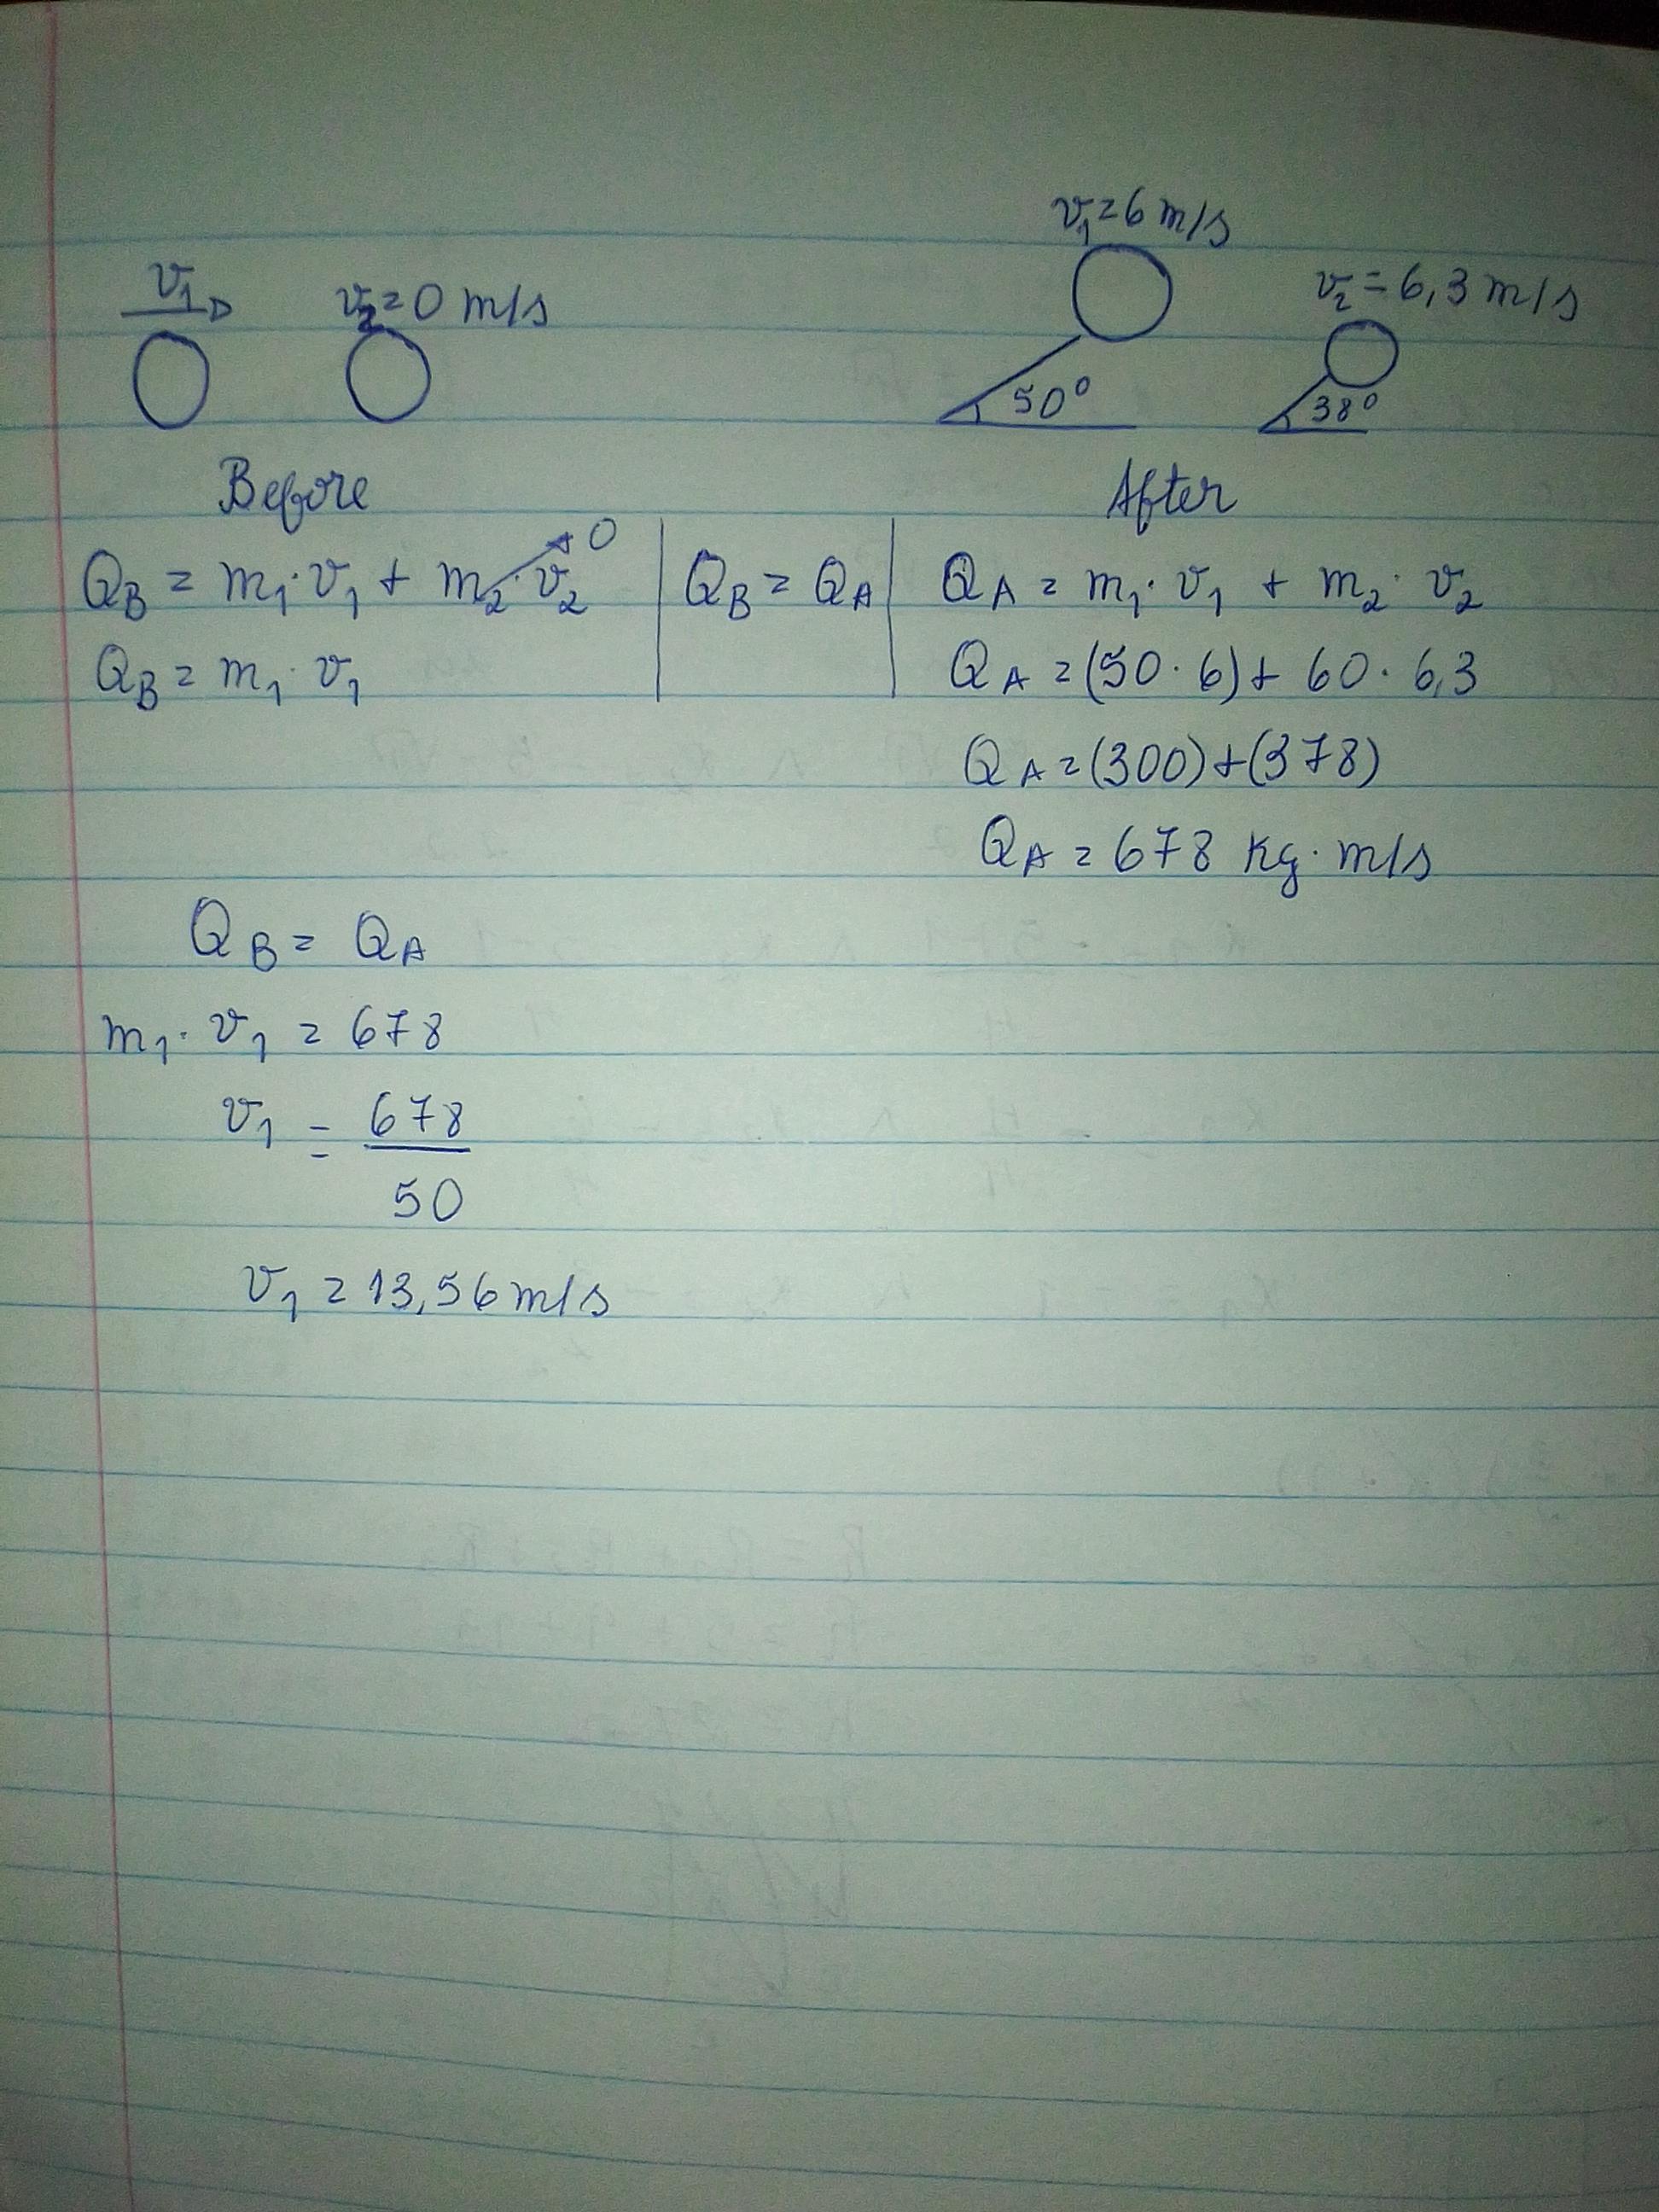 v₁ = 6 m/s
v₁ v₂ = 0 m/s v₂ = 6,3 m/s
50° 38°
Before After
Q_B = m₁·v₁ + m₂·v₂ → 0 | Q_B = Q_A | Q_A = m₁·v₁ + m₂·v₂
Q_B = m₁·v₁ Q_A = (50·6) + 60·6,3
Q_A = (300)+(378)
Q_A = 678 kg·m/s
Q_B = Q_A
m₁·v₁ = 678
v₁ = 678
50
v₁ = 13,56 m/s